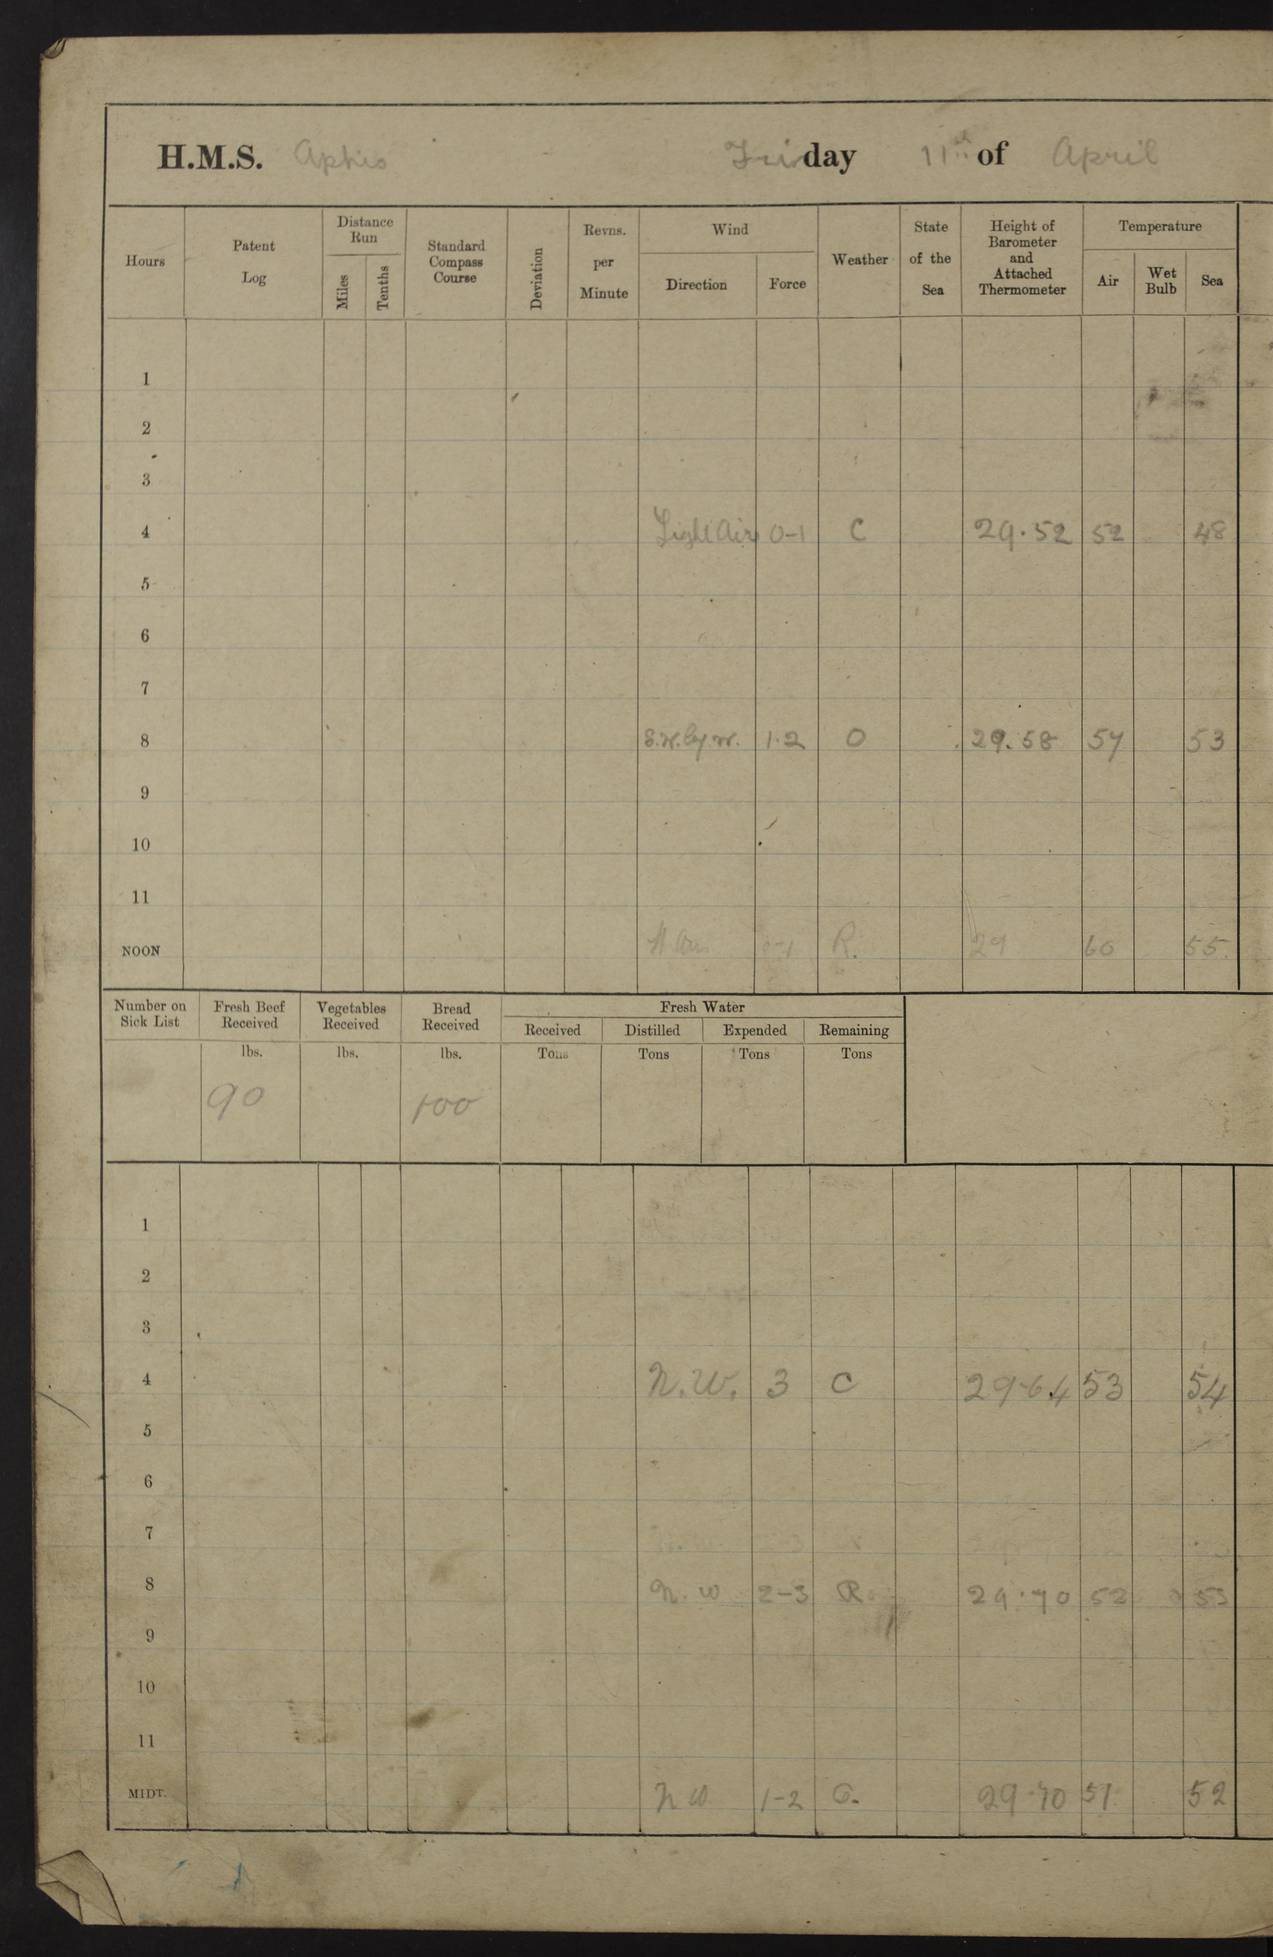 H.M.S. Aphis Friday 11th of April
Hours Patent Log Distance Run Miles Tenths Standard Compass Course Deviation Revns. per Minute Wind Direction Force Weather State of the Sea Height of Barometer and Attached Thermometer Temperature Air Wet Bulb Sea
1
2
3
4 Light Airs 0-1 C 29.52 52 48
5
6
7
8 S.W. by W. 1.2 O 29.58 57 53
9
10
11
NOON 0-1 R. 29 60 55
Number on Sick List Fresh Beef Received Vegetables Received Bread Received Fresh Water
Received Distilled Expended Remaining
lbs. lbs. lbs. Tons Tons Tons Tons
90 100
1
2
3
4 N.W. 3 C 29.64 53 54
5
6
7
8 N.W 2-3 R. 29.70 52 53
9
10
11
MIDT. N W 1-2 29.70 51 52